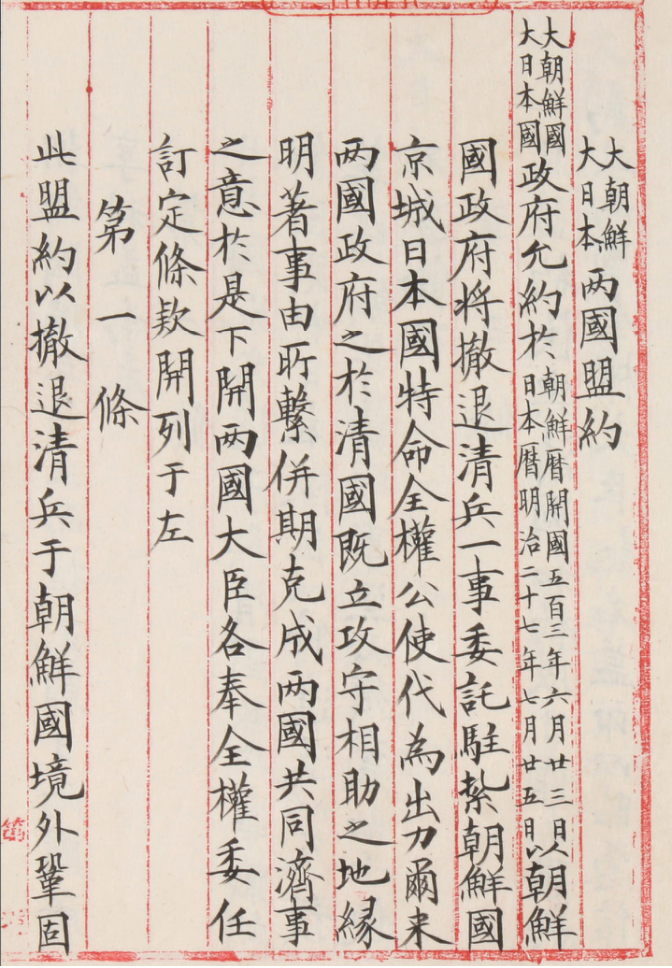 大朝鮮
大日本 两國盟約
大朝鮮國
大日本國 政府允約於 朝鮮曆開國五百三年六月廿三日
日本曆明治二十七年七月廿五日 以朝鮮
國政府将撤退清兵一事委託駐紮朝鮮國
京城日本國特命全權公使代為出力爾来
两國政府之於清國既立攻守相助之地縁
明著事由所繫併期克成两國共同濟事
之意於是下開两國大臣各奉全權委任
訂定條款開列于左
第一條
此盟約以撤退清兵于朝鮮國境外鞏固